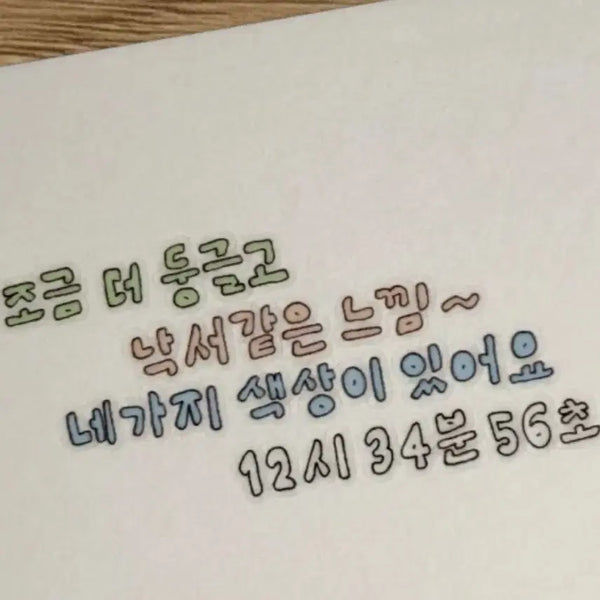 조금 더 둥글고
낙서같은 느낌~
네가지 색상이 있어요
12시 34분 56초